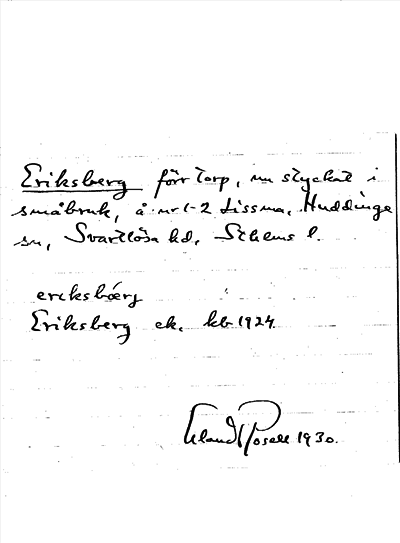 Eriksberg förr torp, nu styckat i
småbruk, å nr 1-2 Lissma, Huddinge
sn, Svartlösa hd, Sthlms l.
Eriksberg ek. kb 1924
Erland Rosell 1930.